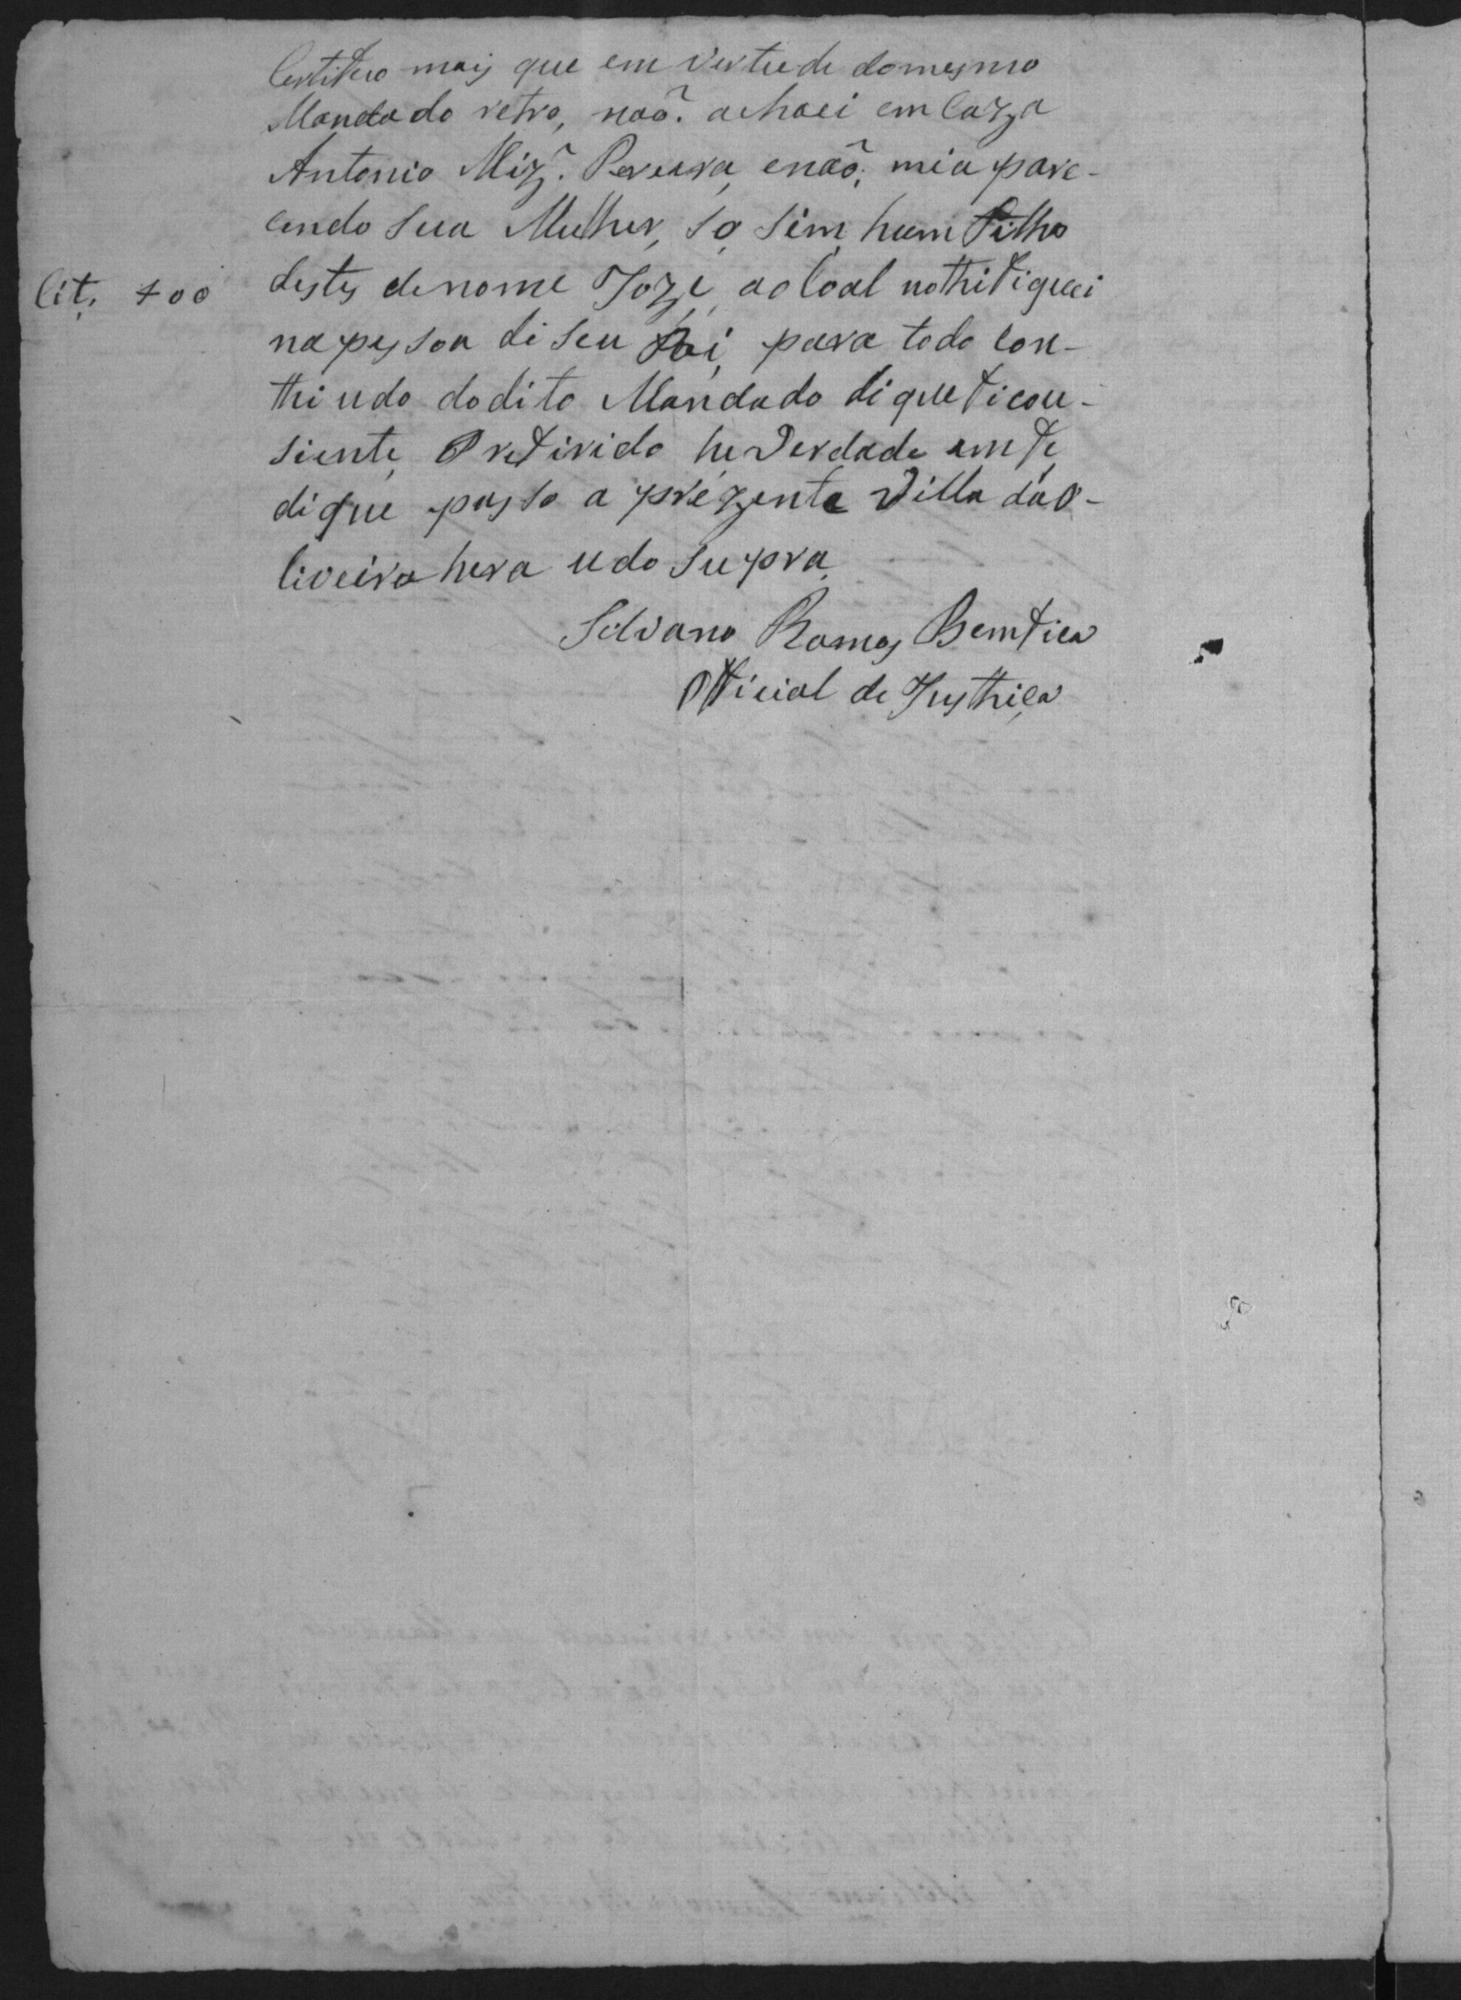 Certifico mais que em vertude domesmo
Mandado retro, naõ. achaei em Caza
Antonio Miz̃. Pereira, enaõ, mia pare-
cendo sua Mulher, so sim, hum Filho
destes denome Joze, ao Coal nothifiquei
Cit, 400
na pessoa di seu Pai, para todo Con-
thiudo dodito Mandado di que ficou-
siente, O refirido he Verdade em fe
di que passo a prezente Villa da O-
liveira hera udo supra
Silvano Ramos Bemfica
Official de Justhiça